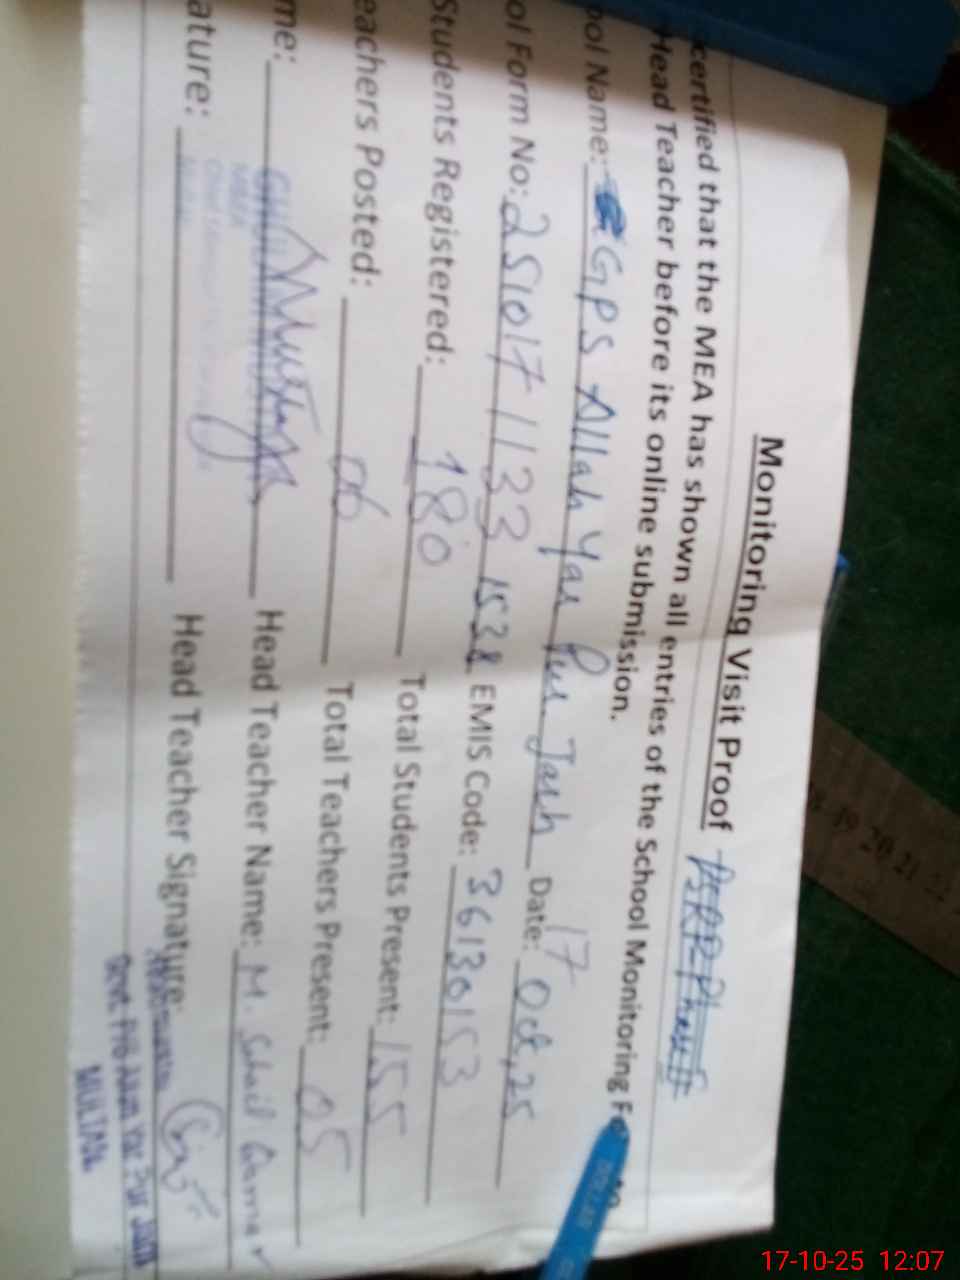 Monitoring Visit Proof PSRP Phase II
certified that the MEA has shown all entries of the School Monitoring
Head Teacher before its online submission.
ool Name: GPS Allah Yar Pur Janh Date: 17 Oct, 25
ol Form No: 251017 1133 1538 EMIS Code: 36130153
Students Registered: 180 Total Students Present: 155
eachers Posted: 06 Total Teachers Present: 05
me: Head Teacher Name: M. Sohail Qamar
ature: Head Teacher Signature:
MULTAN
19 20 21
DOLLAR
17-10-25 12:07